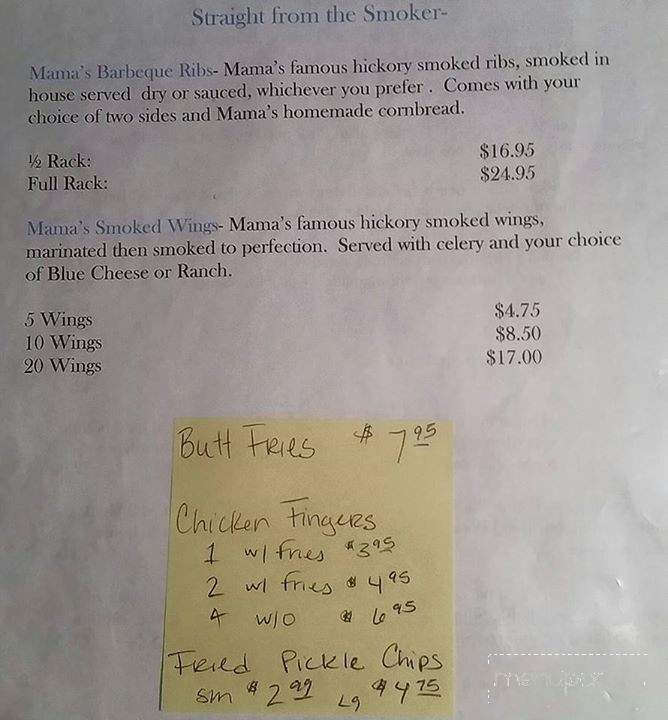 Straight from the Smoker-
Mama's Barbeque Ribs- Mama's famous hickory smoked ribs, smoked in
house served dry or sauced, whichever you prefer . Comes with your
choice of two sides and Mama's homemade cornbread.
½ Rack: $16.95
Full Rack: $24.95
Mama's Smoked Wings- Mama's famous hickory smoked wings,
marinated then smoked to perfection. Served with celery and your choice
of Blue Cheese or Ranch.
5 Wings $4.75
10 Wings $8.50
20 Wings $17.00
Butt Fries $ 7 95
Chicken Fingers
1 w/ fries $3 95
2 w/ fries $ 4 95
4 w/o $ 6 95
Fried Pickle Chips
sm $ 2 99 Lg $ 4 75
menupix